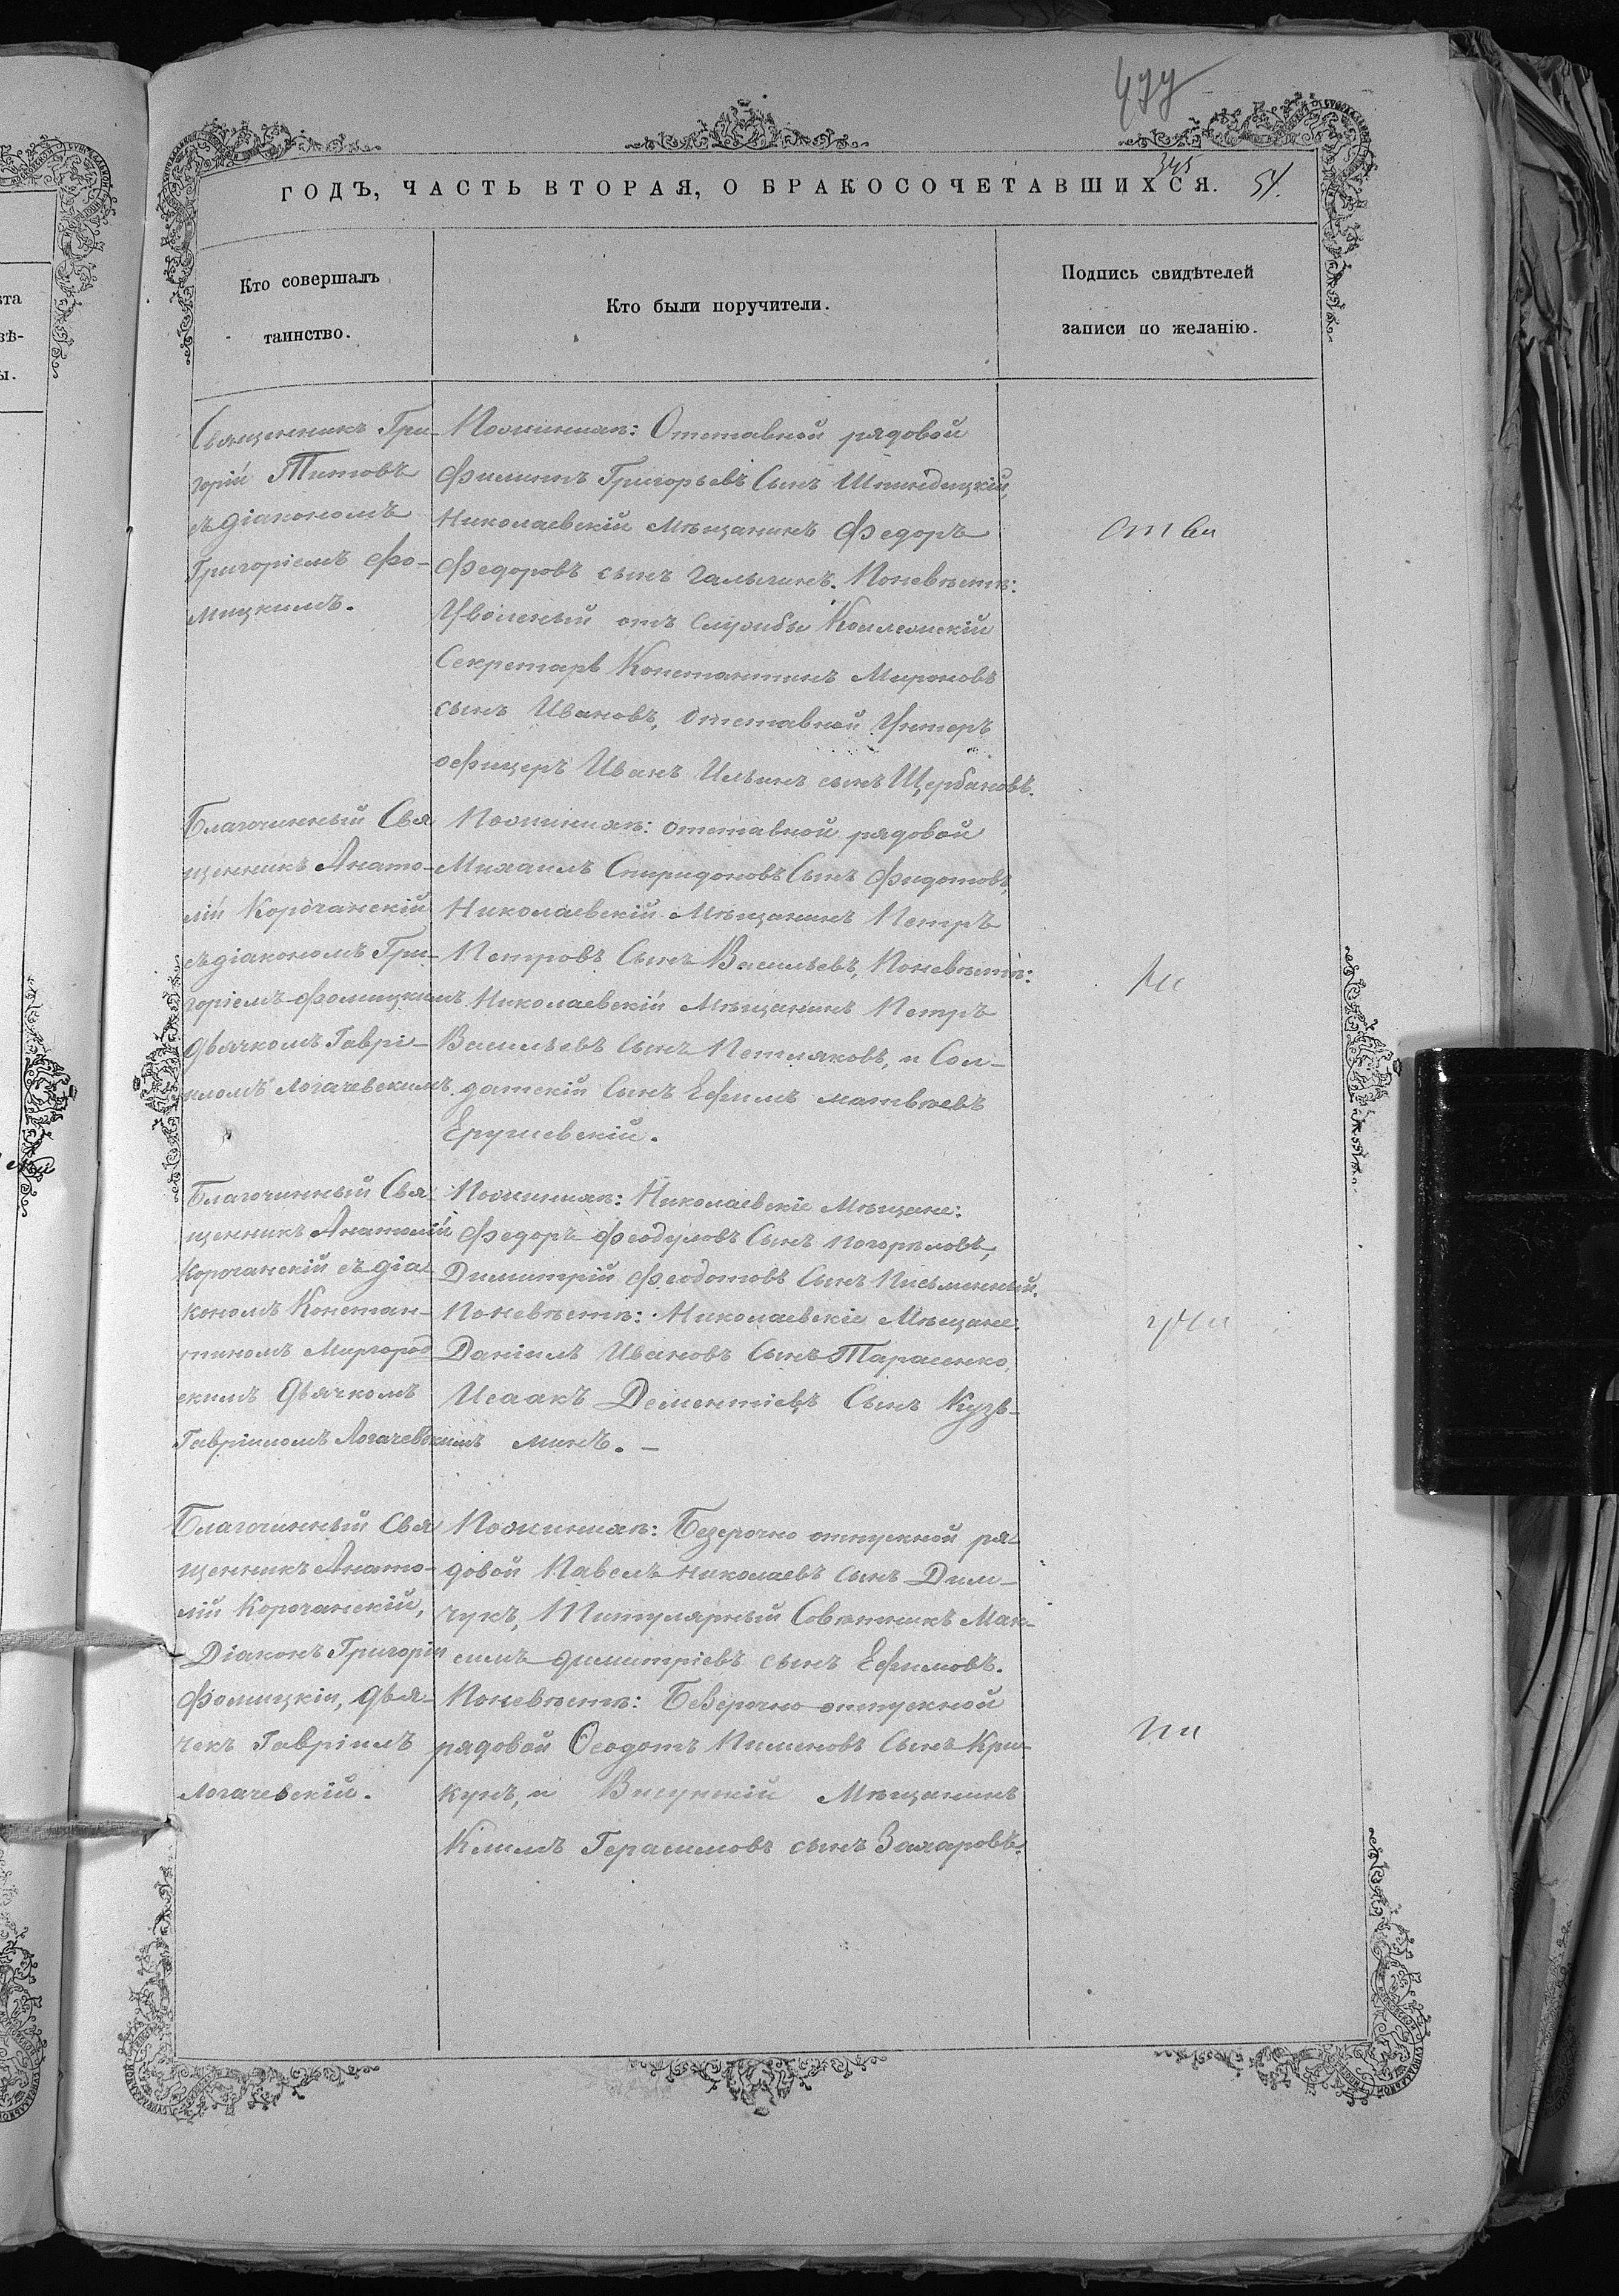 477
345
54.
ГОДЪ, ЧАСТЬ ВТОРАЯ, О БРАКОСОЧЕТАВШИХСЯ.
Кто совершалъ
таинство.
Кто были поручители.
Подпись свидѣтелей
записи по желанію.
Священникъ Гри-
горій Титовъ
съ діакономъ
Григоріемъ Фо-
мицкимъ.
По женихѣ: Отставной рядовой
Филиппъ Григорьевъ Сынъ
Николаевскій Мѣщанинъ Федоръ
Федоровъ сынъ Галыгинъ. По невѣстѣ:
Уволеный отъ Службы Коллежскій
Секретарь Константинъ Мироновъ
сынъ Ивановъ, отставной Унтеръ
офицеръ Иванъ Ильинъ сынъ Щербаковъ.
Благочинный Свя
щенникъ Анато-
лій Корочанскій
съ діакономъ Гри-
горіемъ Фомицкимъ
дьячкомъ Гаврі-
иломъ Логачевскимъ.
По женихѣ: отставной рядовой
Михаилъ Спиридоновъ Сынъ Фидотовъ,
Николаевскій Мѣщанинъ Петръ
Петровъ Сынъ Васильевъ, По невѣстѣ:
Николаевскій Мѣщанинъ Петръ
Васильевъ Сынъ Петляковъ, и Сол-
датскій Сынъ Ефимъ Матвѣевъ
Ерушевскій.
Благочинный Свя-
щенникъ Анатолій
Корочанскій съ діа-
кономъ Констан-
тиномъ Миргород
скимъ Дьячкомъ
Гавріиломъ Логачевскимъ
По женихѣ: Николаевскіе Мѣщане:
Федоръ Феодуловъ Сынъ Погорѣловъ,
Димитрій Феодотовъ Сынъ Письменный.
По невѣстѣ: Николаевскіе Мѣщане:
Даніилъ Ивановъ Сынъ Тарасенко,
Исаакъ Дементіевъ Сынъ Кузь-
минъ.
Благочинный Свя
щенникъ Анато-
лій Корочанскій,
Діаконъ Григорій
Фомицкій, дья-
чекъ Гавріилъ
Логачевскій.
По женихѣ: Безсрочно отпускной ря-
довой Павелъ Николаевъ сынъ Дим-
чукъ, Титулярный Совѣтникъ Мак-
симъ Димитріевъ сынъ Ефимовъ.
По невѣстѣ: Безсрочно отпускной
рядовой Ѳеодотъ Пименовъ Сынъ Кри-
кунъ, и Висунскій Мѣщанинъ
Климъ Герасимовъ сынъ Захаровъ.